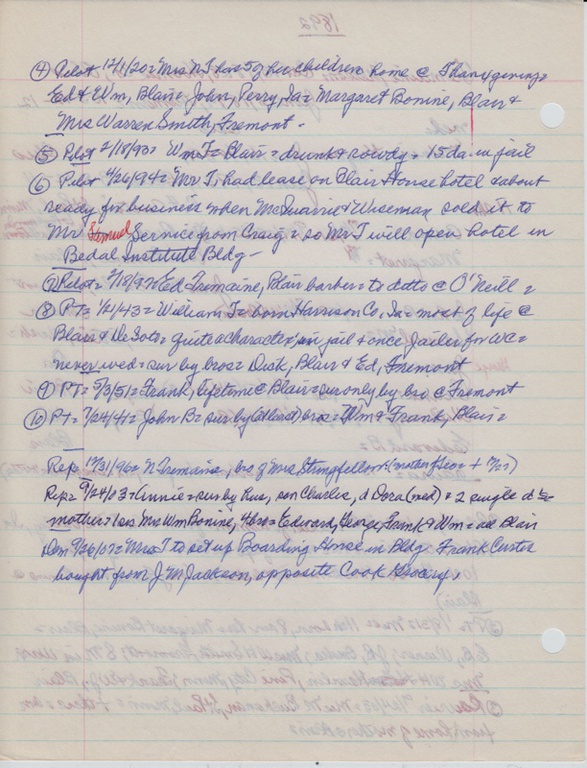 1892
④ Pilot 12/1/20 = Mrs N T has 5 of her children home @ Thanksgiving =
Ed & Wm, Blair = John, Perry, Ia = Margaret Bonine, Blair &
Mrs Warren Smith, Fremont -
⑤ Pilot 2/18/93 = Wm T = Blair = drunk & rowdy = 15 da. in jail
⑥ Pilot 4/26/94 = Mr T, had lease on Blair House hotel & about
ready for business when McQuarrie & Wiseman sold it to
Mr Samuel Service from Craig = so Mr T will open hotel in
Bedal Institute Bldg -
⑦ Pilot = 2/18/92 Ed Tremaine, Blair barber = to ditto @ O'Neill =
⑧ PT = 1/21/43 = William T = born Harrison Co, Ia = most of life @
Blair & DeSoto = quite a character in jail & once jailer for WC =
never wed = sur by bros = Dick, Blair & Ed, Fremont
⑨ PT = 5/3/51 = Frank, lifetime @ Blair = sur only by bro @ Fremont
⑩ PT = 7/24/41 = John B = sur by bros = Wm & Frank, Blair =
Rep = 12/31/96 = N Tremaine, bro of Mrs Stringfellow
Rep = 9/24/03 = Annie = sur by Rus, son Charles, d Dora (med) & 2 single d =
mother = sis Mrs Wm Bonine, 4 bro = Edward, George, Frank & Wm = all Blair
Dem 9/26/07 = Mrs T to set up Boarding House in Bldg Frank Curtis
bought from J M Jackson, opposite Cook Grocery,